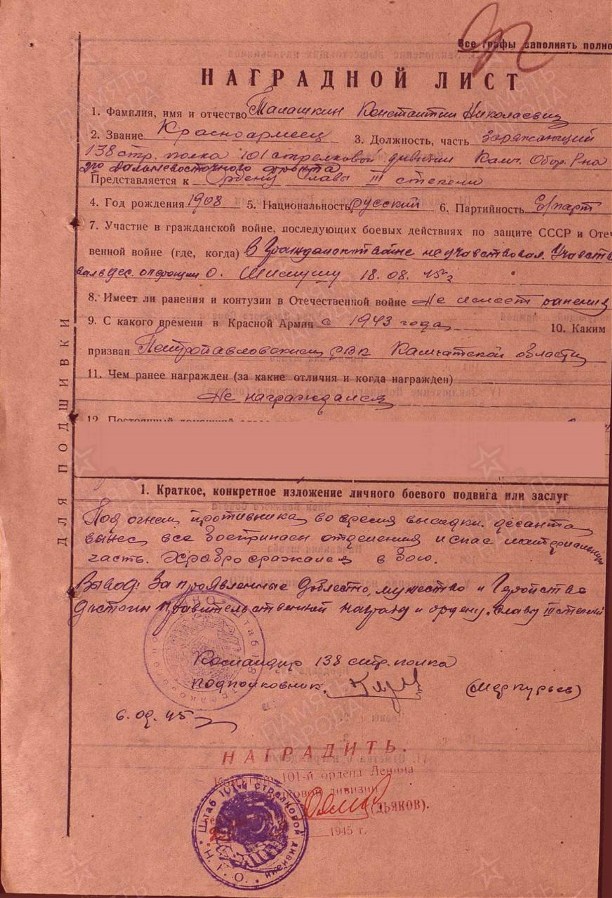 Все графы заполнять полно
НАГРАДНОЙ ЛИСТ
1. Фамилия, имя и отчество Талашкин Константин Николаевич
2. Звание Красноармеец 3. Должность, часть Заряжающий
138 стр. полка 101 стрелковой дивизии Камч. Обор. р-на
2го Дальневосточного фронта
Представляется к Ордену Слава III степени
4. Год рождения 1908 5. Национальность русский 6. Партийность б/парт
7. Участие в гражданской войне, последующих боевых действиях по защите СССР и Отече
венной войне (где, когда) В Гражданской войне не участвовал. Участв
вал дес. операции о. Шимушу 18.08.45г
8. Имеет ли ранения и контузия в Отечественной войне Не имеет ранения
9. С какого времени в Красной Армии с 1943 года 10. Каким
призван Петропавловским РВК Камчатской области
11. Чем ранее награжден (за какие отличия и когда награжден)
Не награждался
ДЛЯ ПОДШИВКИ
1. Краткое, конкретное изложение личного боевого подвига или заслуг
Под огнем противника во время высадки десанта
вынес все боеприпасы отделения и спас материальную
часть. Храбро сражался в бою.
Вывод: За проявленные доблесть, мужество и Геройство
достоин правительственной награды и ордену Слава III степени
Командир 138 стр. полка
подполковник (Меркурьев)
6.09.45г
НАГРАДИТЬ.
101-й ордена Ленина
дивизии
(Дьяков).
1945 г.
Штаб 101-й стрелковой дивизии
Н.К.О.